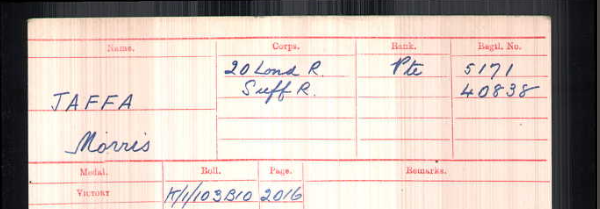 Name. Corps. Rank. Regtl. No.
20 Lond R. Pte 5171
Suff R. 40838
JAFFA
Morris
Medal. Roll. Page. Remarks.
VICTORY K/1/103B10 2016